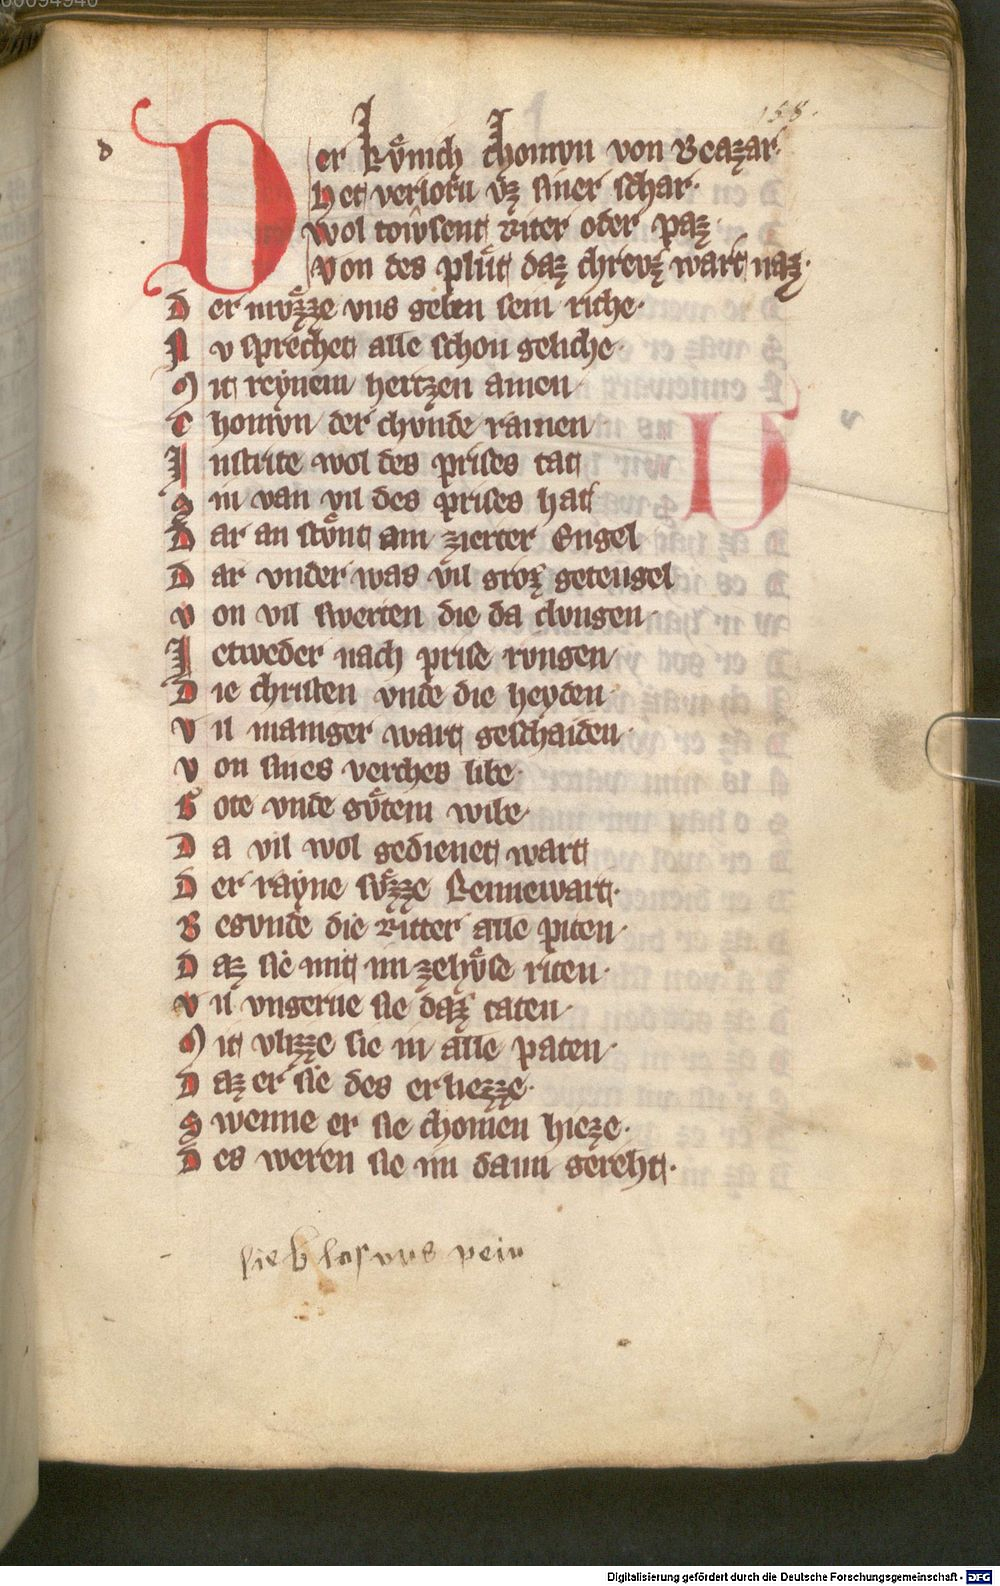 158.
d
Der kuͤnich thomyn von Beazar·
Het verlorn vͤz siner schar·
wol towsent ritter oder paz·
Von des pluͤt daz chrevͤz wart naz·
Der mvͤzze vns geben sein riche·
Nv sprechet alle schon geliche·
Mit reynem hertzen amen·
Thomyn der chvnde ramen
In strite wol des prises tat
Sin van vil des prises hat
Dar an stvͦnt ain zierter Engel
Dar vnder was vil groz getengel
Von vil swerten die da clvngen·
Ietweder nach prise rvngen
Die christen vnde die heyden·
Vil maniger wart geschaiden·
Von sines verches libe·
Gote vnde gvͤtem wibe·
Da vil wol gedienet wart
Der rayne svͤzze Rennewart·
Besvnde die Ritter alle piten·
Daz sie mit im zehvͦse riten·
Vil vngerne sie daz taten·
Mit vlizze sie in alle paten·
Daz er sie des erliezze·
Swenne er sie chomen hieze·
Des weren sie im dann gereht·
Digitalisierung gefördert durch die Deutsche Forschungsgemeinschaft - DFG